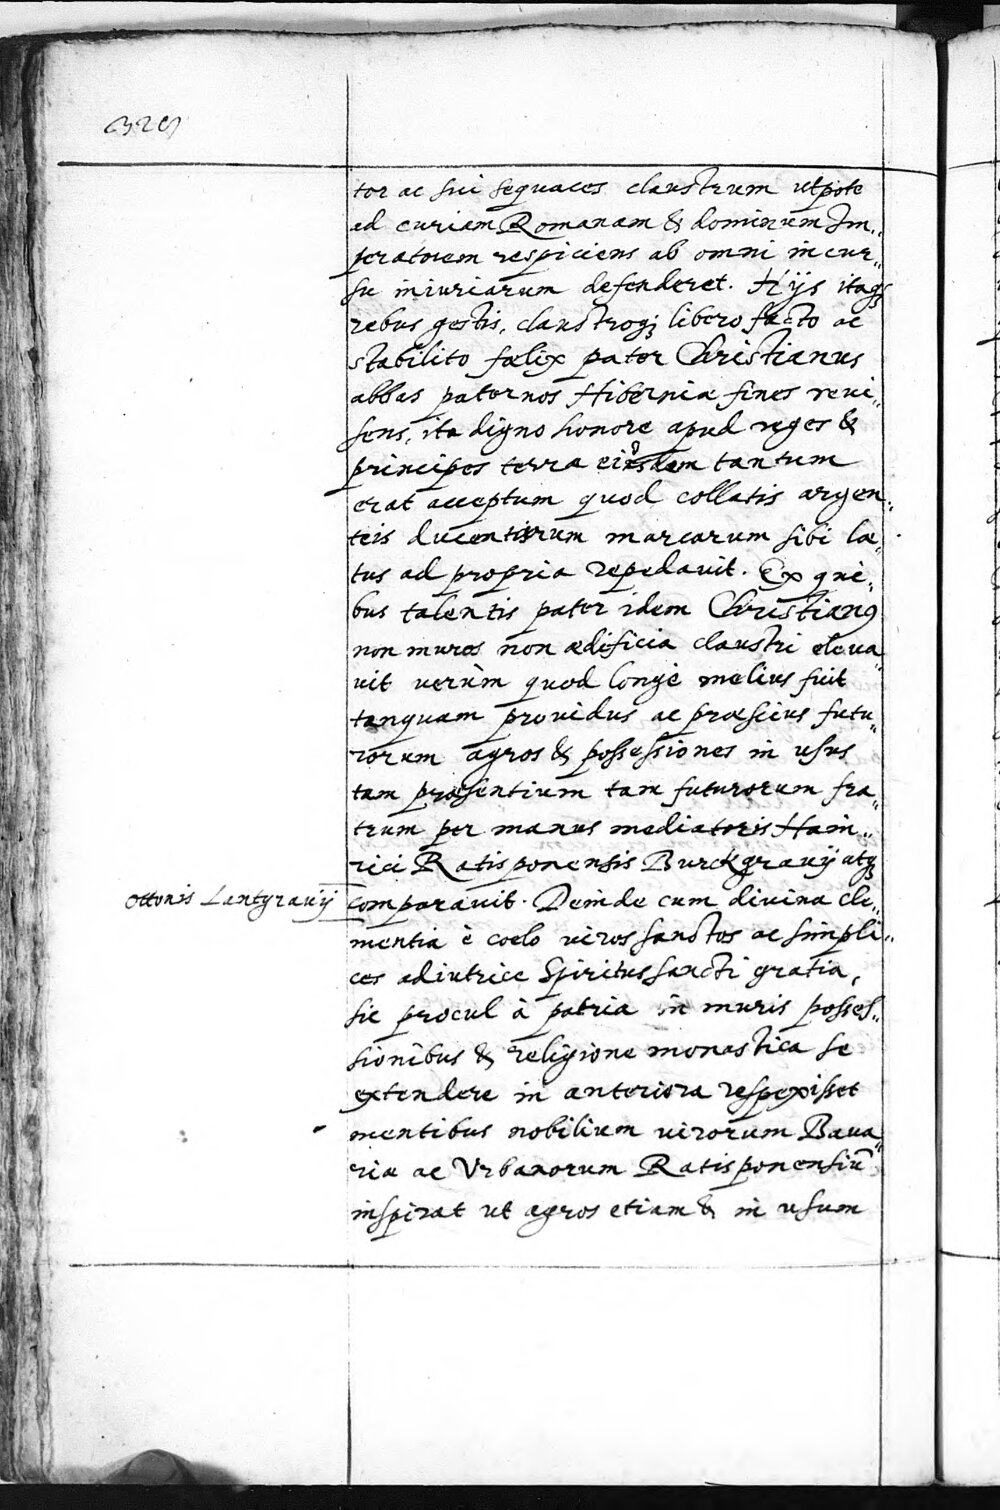 tor ac sui sequaces claustrum utpote
ad curiam Romanam & dominum Im„
peratorem respiciens ab omni incur„
su iniuriarum defenderet. Hijs itaqꝫ
rebus gestis, claustroqꝫ libero facto ac
stabilito fœlix pater Christianus
abbas paternos Hiberniæ fines revi„
sens, ita digno honore apud reges &
principes terræ eiusdem tantum
erat acceptum quod collatis argen„
teis ducentarum marcarum sibi læ„
tus ad propria repedavit. Ex qui„
bus talentis pater idem Christianꝰ
non muros non ædificia claustri eleva„
vit verùm quod longè melius fuit
tanquam providus ac præscius futu„
rorum agros & possessiones in usus
tam præsentium tam futurorum fra„
trum per manus mediatoris Hain„
rici Ratisponensis Burckgravij atqꝫ
Ottonis Lantgravij
comparavit. Deinde cum divina cle„
mentia è coelo viros sanctos ac simpli„
ces adiutrice Spiritus sancti gratia,
sic procul à patria in muris posses„
sionibus & religione monastica se
extendere in anteriora respexisset
mentibus nobilium virorum Bava„
riæ ac Urbanorum Ratisponensiū
inspirat ut agros etiam & in usum